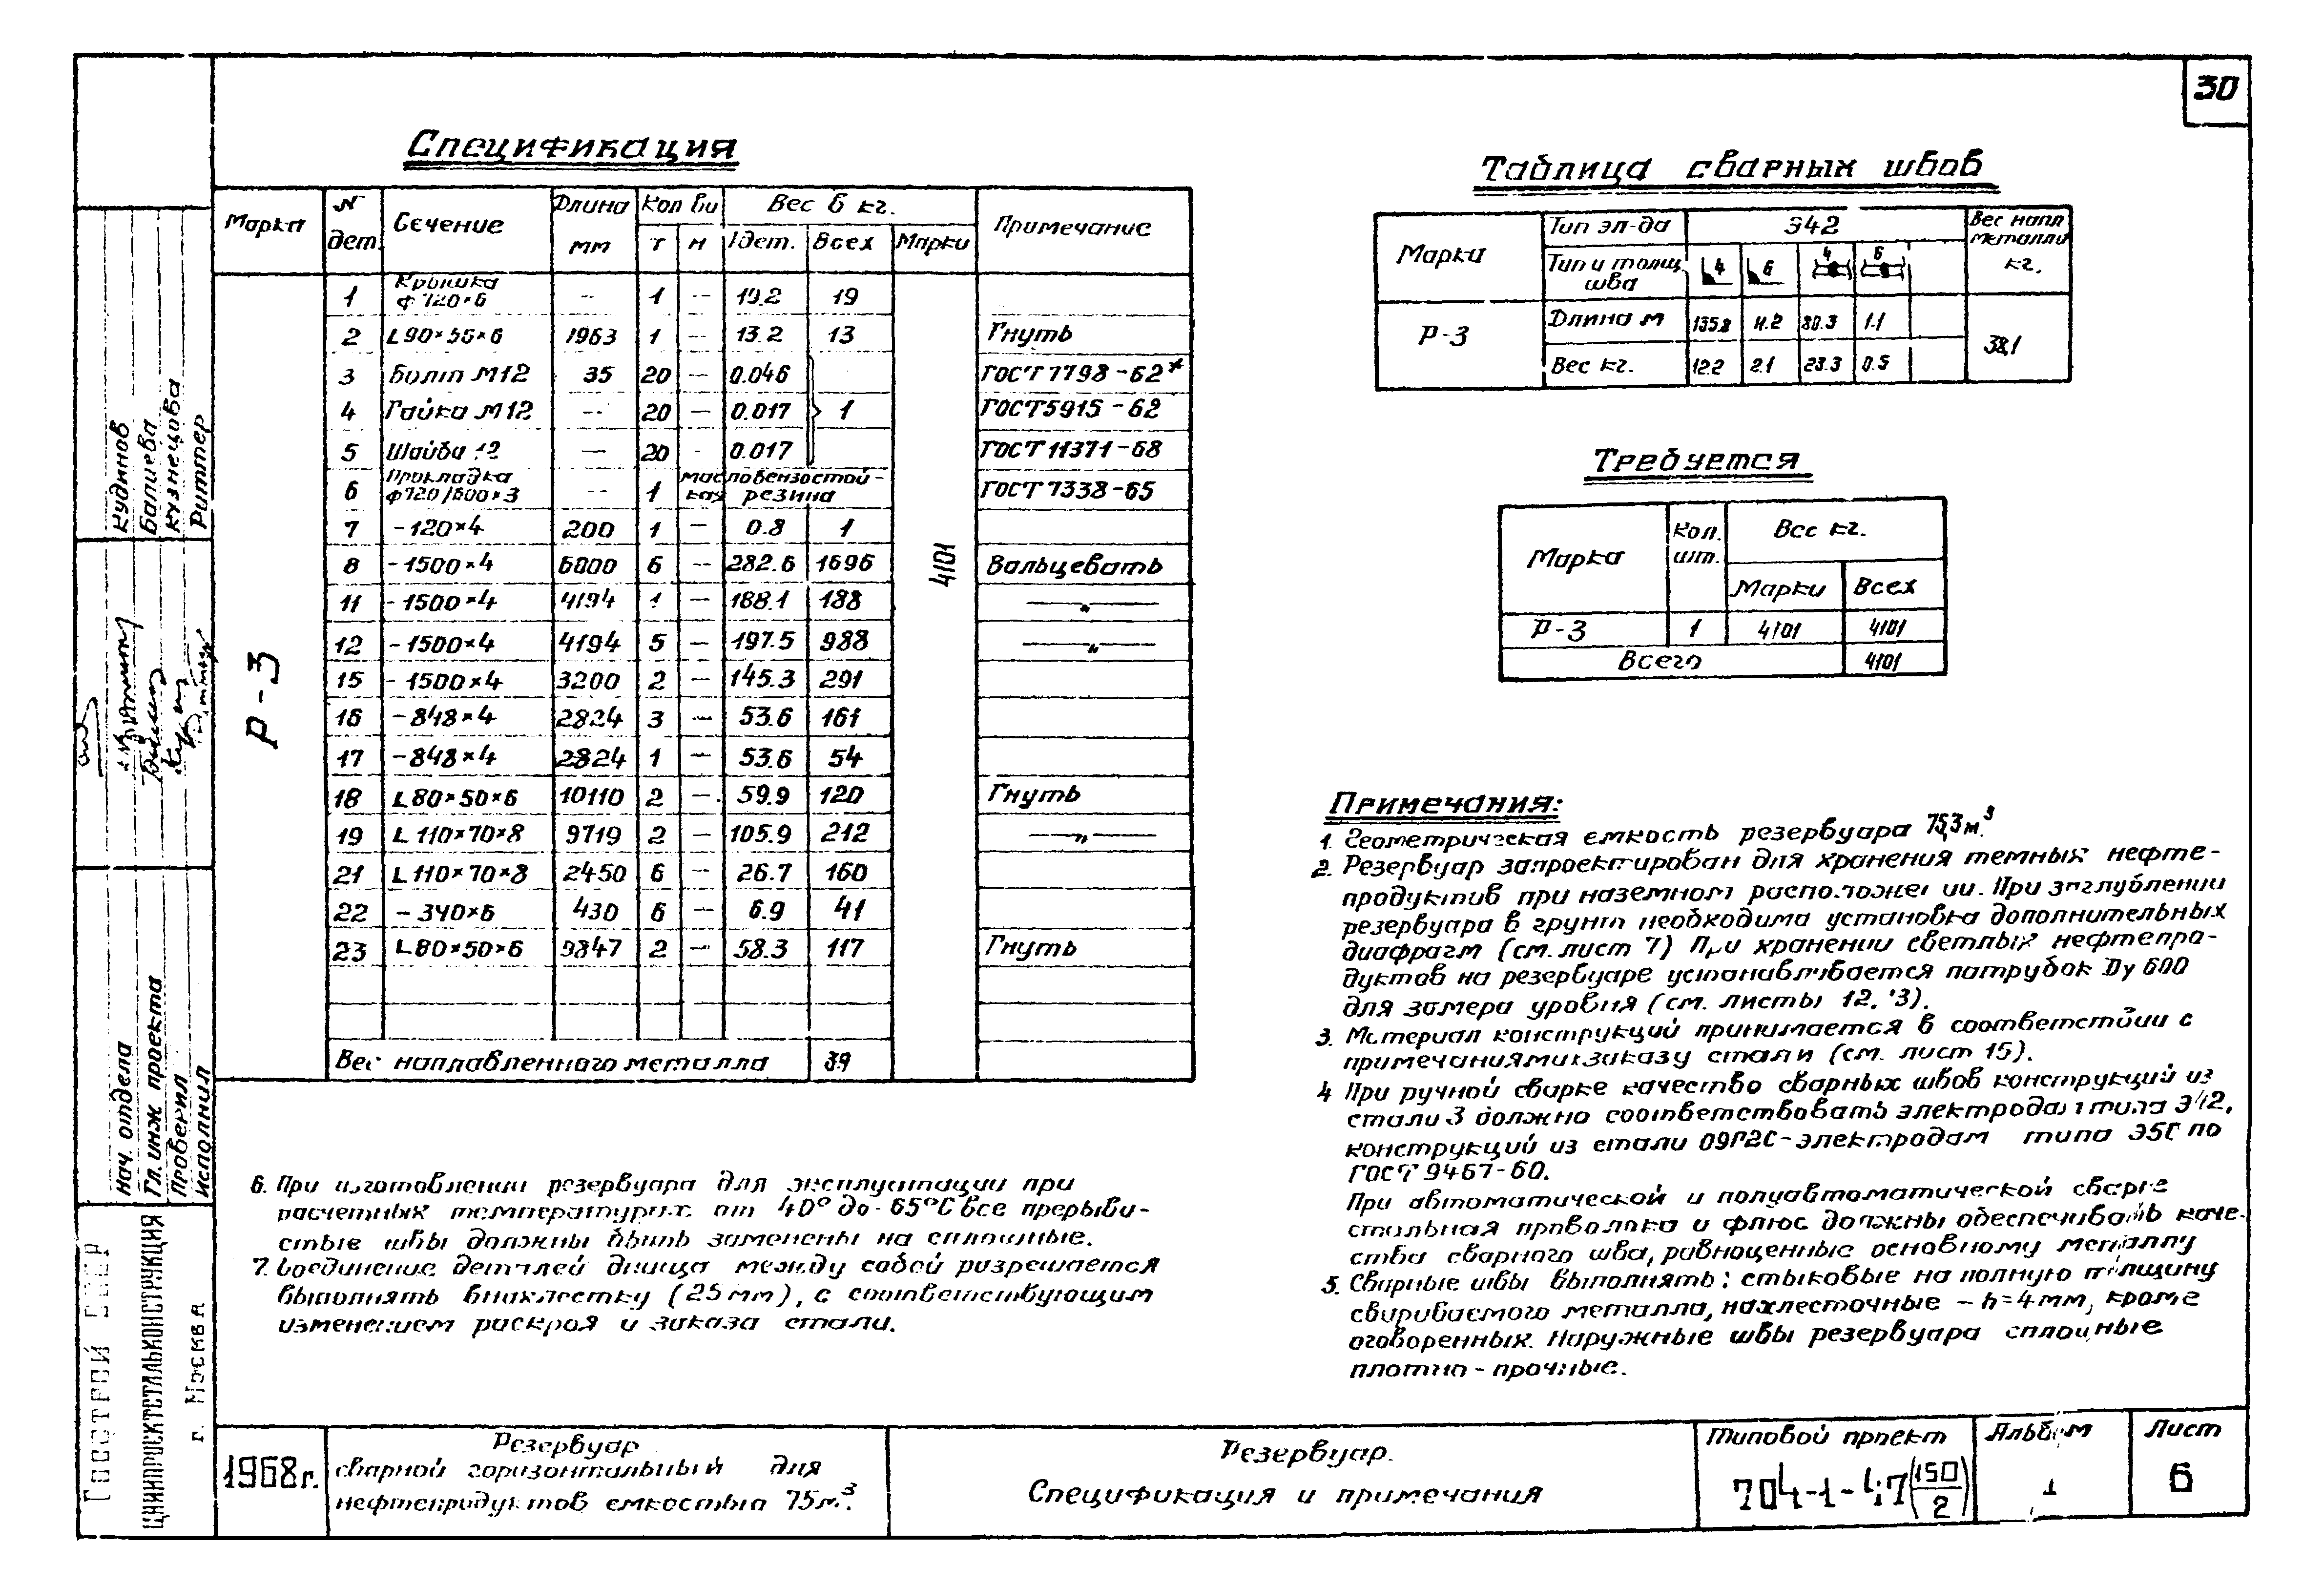 30
Спецификация
Марка | N дет. | Сечение | Длина мм | Кол во т н | Вес в кг. 1дет. Всех Марки | Примечание
Р-3 4101
1 Крышка ф720×6 -- 1 -- 19.2 19
2 L90×56×6 1963 1 -- 13.2 13 Гнуть
3 Болт М12 35 20 — 0.046 ГОСТ 7798-62*
4 Гайка М12 -- 20 — 0.017 1 ГОСТ 5915-62
5 Шайба 12 — 20 - 0.017 ГОСТ 11371-68
6 Прокладка ф720/600×3 -- 1 маслобензостой-кая резина ГОСТ 7338-65
7 -120×4 200 1 — 0.8 1
8 -1500×4 6000 6 -- 282.6 1696 Вальцевать
11 -1500×4 4194 1 — 188.1 188 —„—
12 -1500×4 4194 5 — 197.5 988 —„—
15 -1500×4 3200 2 — 145.3 291
16 -848×4 2824 3 — 53.6 161
17 -848×4 2824 1 — 53.6 54
18 L80×50×6 10110 2 — 59.9 120 Гнуть
19 L110×70×8 9719 2 — 105.9 212 —„—
21 L110×70×8 2450 6 -- 26.7 160
22 -340×6 430 6 — 6.9 41
23 L80×50×6 9847 2 — 58.3 117 Гнуть
Вес наплавленного металла 39
6. При изготовлении резервуара для эксплуатации при
расчетных температурах от 40° до -65°С все прерыви-
стые швы должны быть заменены на сплошные.
7. Соединение деталей днища между собой разрешается
выполнять внахлестку (25мм), с соответствующим
изменением раскроя и заказа стали.
Таблица сварных швов
Марки | Тип эл-да | Э42 | Вес напл металли кг.
Тип и толщ. шва 4 6 4 6
Р-3 Длина м 135.8 11.2 80.3 1.1 38,1
Вес кг. 12.2 2.1 23.3 0.5
Требуется
Марка | Кол. шт. | Вес кг. Марки Всех
Р-3 1 4101 4101
Всего 4101
Примечания:
1. Геометрическая емкость резервуара 75,3м.³
2. Резервуар запроектирован для хранения темных нефте-
продуктов при наземном расположении. При заглублении
резервуара в грунт необходима установка дополнительных
диафрагм (см. лист 7) При хранении светлых нефтепро-
дуктов на резервуаре устанавливается патрубок Ду 600
для замера уровня (см. листы 12, 13).
3. Материал конструкций принимается в соответствии с
примечаниями к заказу стали (см. лист 15).
4 При ручной сварке качество сварных швов конструкций из
стали 3 должно соответствовать электродам типа Э42,
конструкций из стали 09Г2С-электродам типа Э50 по
ГОСТ 9467-60.
При автоматической и полуавтоматической сварке
стальная проволока и флюс должны обеспечивать каче-
ства сварного шва, равноценные основному металлу
5. Сварные швы выполнять: стыковые на полную толщину
свариваемого металла, нахлесточные - h=4мм, кроме
оговоренных. Наружные швы резервуара сплошные
плотно-прочные.
Кудинов
Балиева
Кузнецова
Риттер
Нач. отдела
Гл. инж проекта
Проверил
Исполнил
Госстрой СССР
ЦНИИПРОЕКТСТАЛЬКОНСТРУКЦИЯ
г. Москва
1968г.
Резервуар
сварной горизонтальный для
нефтепродуктов емкостью 75м.³
Резервуар.
Спецификация и примечания
Типовой проект
704-1-47(150/2)
Альбом
1
Лист
6